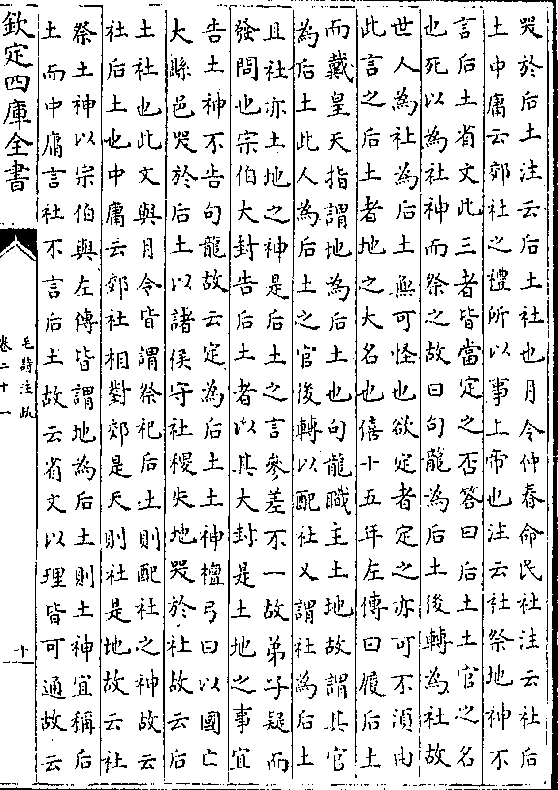 哭於后土注云后土社也月令仲春命民社注云社后
土中庸云郊社之禮所以事上帝也注云社祭地神不
言后土省文此三者皆當定之否荅曰后土土官之名
也死以為社神而祭之故曰句龍為后土後轉為社故
世人為社為后土無可怪也欲定者定之亦可不須由
此言之后土者地之大名也僖十五年左傳曰履后土
而戴皇天指謂地為后土也句龍職主土地故謂其官
為后土此人為后土之官後轉以配社又謂社為后土
且社亦土地之神是后土之言參差不一故弟子疑而
發問也宗伯大封告后土者以其大封是土地之事宜
告土神不告句龍故云定為后土土神檀弓曰以國亡
大縣邑哭於后土以諸侯守社稷失地哭於社故云后
土社也此文與月令皆謂祭祀后土則配社之神故云
社后土也中庸云郊社相對郊是天則社是地故云社
祭土神以宗伯與左傳皆謂地為后土則土神宜稱后
土而中庸言社不言后土故云省文以理皆可通故云
欽定四庫全書
毛詩注疏
卷二十一
十